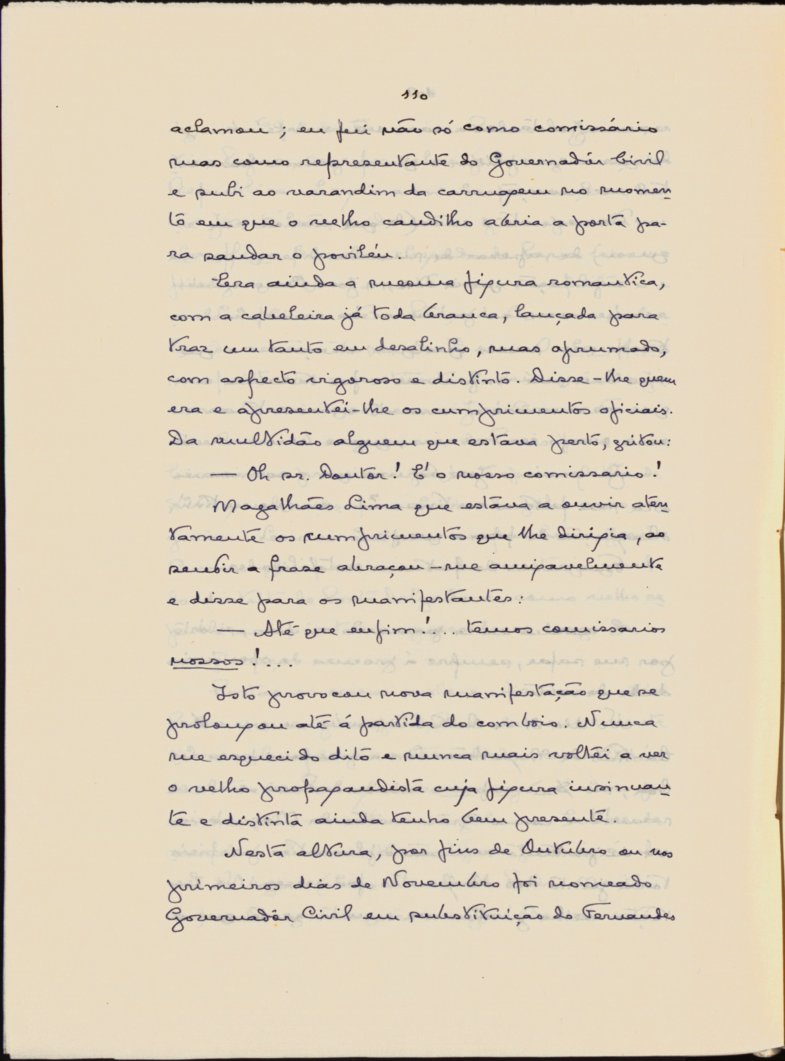 110
aclamou ; eu fui não só como comissário
mas como representante do Governadôr Civil
e subi ao varandim da carruagem no momen-
to em que o velho caudilho abria a porta pa-
ra saudar o poviléu.
Era ainda a mesma figura romantica,
com a cabeleira já toda branca, lançada para
traz um tanto em desalinho, mas aprumado,
com aspecto vigoroso e distinto. Disse-lhe quem
era e apresentei-lhe os cumprimentos oficiais.
Da multidão alguem que estava perto, gritou:
— Oh sr. Doutor! E' o nosso comissario!
Magalhães Lima que estáva a ouvir aten-
tamente os cumprimentos que lhe dirigia, ao
sentir a frase abraçou-me amigavelmente
e disse para os manifestantes:
— Até que enfim!... temos comissarios
nossos!...
Isto provocou nova manifestação que se
prolongou até á partida do comboio. Nunca
me esqueci do dito e nunca mais voltei a ver
o velho propagandista cuja figura insinuan-
te e distinta ainda tenho bem presente.
Nesta altura, por fins de Outubro ou nos
primeiros dias de Novembro foi nomeado
Governadôr Civil em substituição do Fernandes